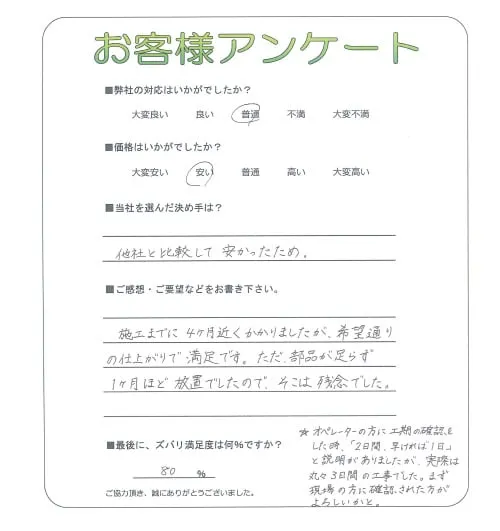 お客様アンケート
■弊社の対応はいかがでしたか？
大変良い　良い　普通　不満　大変不満
■価格はいかがでしたか？
大変安い　安い　普通　高い　大変高い
■当社を選んだ決め手は？
他社と比較して安かったため。
■ご感想・ご要望などをお書き下さい。
施工までに4ヶ月近くかかりましたが、希望通り
の仕上がりで満足です。ただ、部品が足らず
1ヶ月ほど放置でしたので、そこは残念でした。
■最後に、ズバリ満足度は何％ですか？
80　％
ご協力頂き、誠にありがとうございました。
☆オペレーターの方に工期の確認を
した時、「2日間、早ければ1日」
と説明がありましたが、実際は
丸々3日間の工事でした。まず
現場の方に確認された方が
よろしいかと。